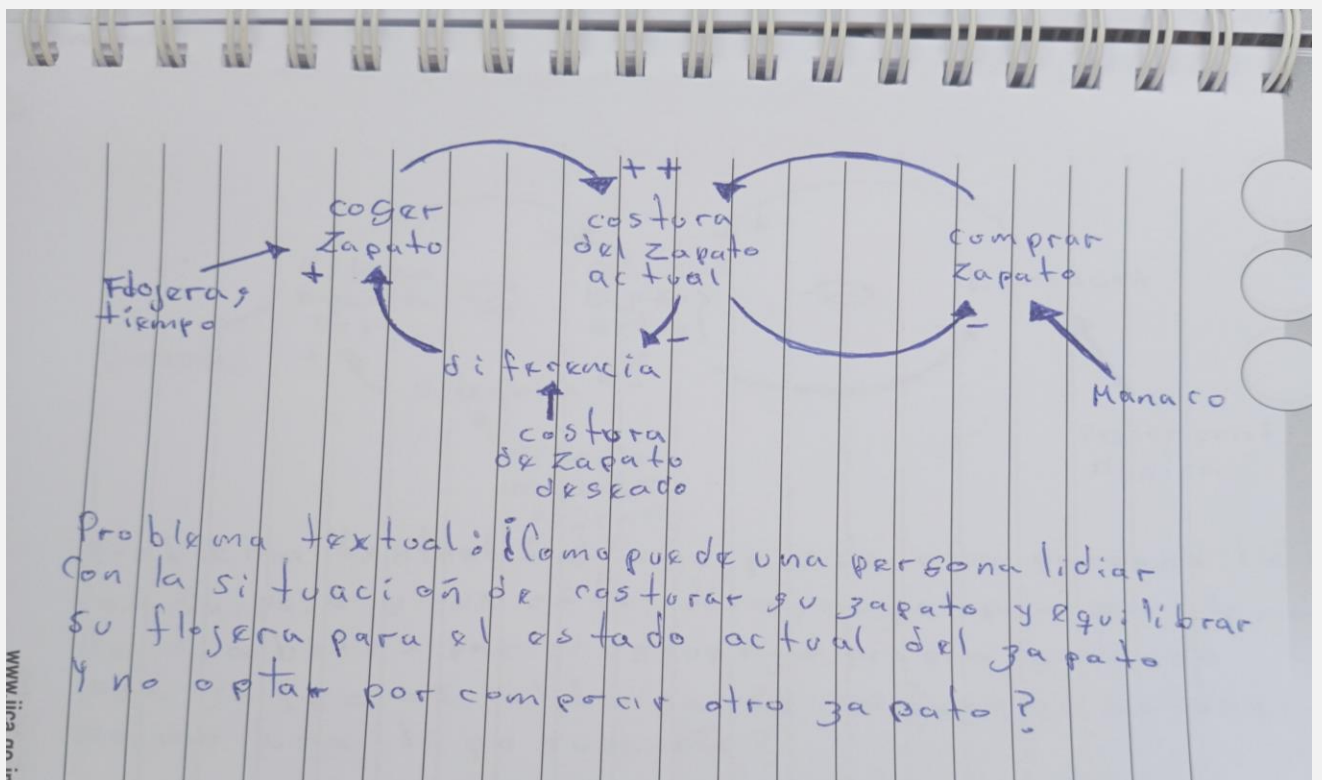 + +
coger
zapato
+
costora
del zapato
actual
comprar
zapato
Flojera,
tiempo
-
-
diferencia
Manaco
costora
de zapato
deseado
Problema textual: ¿Como puede una persona lidiar
Con la situación de costurar su zapato y equilibrar
su flojera para el estado actual del zapato
Y no optar por comprar otro zapato?